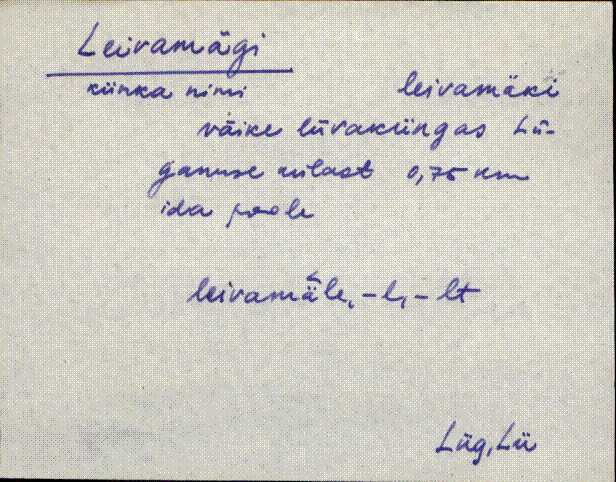 Leivamägi
künka nimi leivamäki
väike liivaküngas Lü-
ganuse külast 0,75 km
ida poole
leivamä̆le, -l, -lt
Lüg, Lü